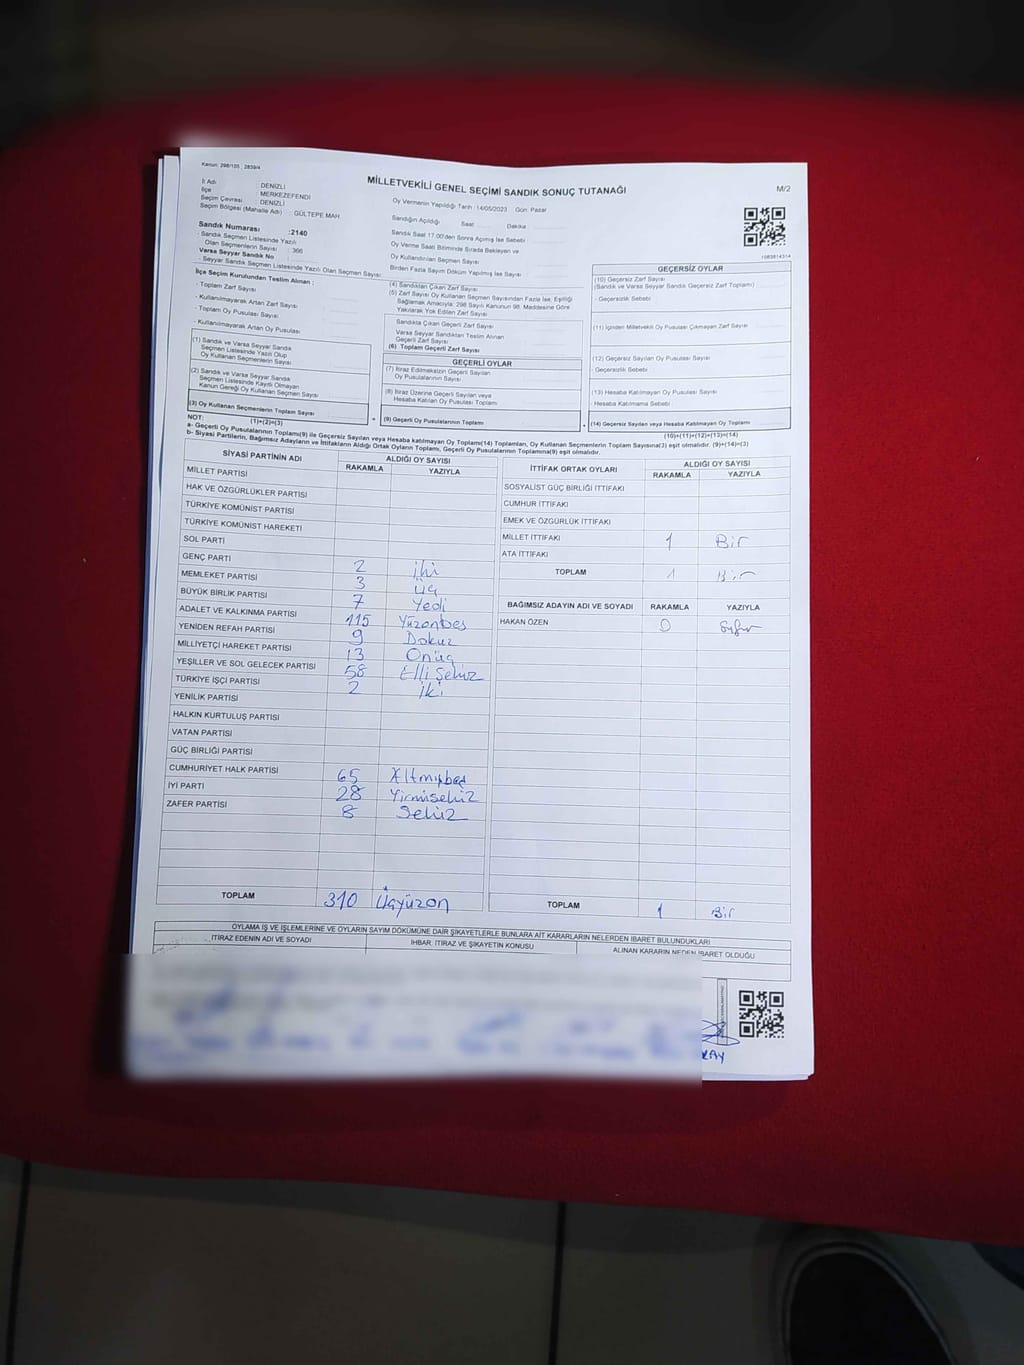 Kanun: 298/105 ; 2839/4
MİLLETVEKİLİ GENEL SEÇİMİ SANDIK SONUÇ TUTANAĞI
M/2
İl Adı : DENİZLİ
İlçe : MERKEZEFENDİ
Seçim Çevresi : DENİZLİ
Seçim Bölgesi (Mahalle Adı) : GÜLTEPE MAH
Oy Vermenin Yapıldığı Tarih : 14/05/2023 Gün: Pazar
Sandığın Açıldığı Saat Dakika
Sandık Saat 17.00'den Sonra Açılmış İse Sebebi
Oy Verme Saati Bitiminde Sırada Bekleyen ve
Oy Kullandırılan Seçmen Sayısı
Birden Fazla Sayım Döküm Yapılmış İse Sayısı
Sandık Numarası : 2140
- Sandık Seçmen Listesinde Yazılı
Olan Seçmenlerin Sayısı : 366
Varsa Seyyar Sandık No
- Seyyar Sandık Seçmen Listesinde Yazılı Olan Seçmen Sayısı
İlçe Seçim Kurulundan Teslim Alınan :
- Toplam Zarf Sayısı
- Kullanılmayarak Artan Zarf Sayısı
- Toplam Oy Pusulası Sayısı
- Kullanılmayarak Artan Oy Pusulası
(1) Sandık ve Varsa Seyyar Sandık
Seçmen Listesinde Yazılı Olup
Oy Kullanan Seçmenlerin Sayısı
(2) Sandık ve Varsa Seyyar Sandık
Seçmen Listesinde Kayıtlı Olmayan
Kanun Gereği Oy Kullanan Seçmen Sayısı
(3) Oy Kullanan Seçmenlerin Toplam Sayısı
(1)+(2)=(3)
(4) Sandıktan Çıkan Zarf Sayısı
(5) Zarf Sayısı Oy Kullanan Seçmen Sayısından Fazla İse, Eşitliği
Sağlamak Amacıyla; 298 Sayılı Kanunun 98. Maddesine Göre
Yakılarak Yok Edilen Zarf Sayısı
Sandıkta Çıkan Geçerli Zarf Sayısı
Varsa Seyyar Sandıktan Teslim Alınan
Geçerli Zarf Sayısı
(6) Toplam Geçerli Zarf Sayısı
GEÇERLİ OYLAR
(7) İtiraz Edilmeksizin Geçerli Sayılan
Oy Pusulalarının Sayısı
(8) İtiraz Üzerine Geçerli Sayılan veya
Hesaba Katılan Oy Pusulası Toplamı
(9) Geçerli Oy Pusulalarının Toplamı
1083814314
GEÇERSİZ OYLAR
(10) Geçersiz Zarf Sayısı
(Sandık ve Varsa Seyyar Sandık Geçersiz Zarf Toplamı)
- Geçersizlik Sebebi
(11) İçinden Milletvekili Oy Pusulası Çıkmayan Zarf Sayısı
(12) Geçersiz Sayılan Oy Pusulası Sayısı
- Geçersizlik Sebebi
(13) Hesaba Katılmayan Oy Pusulası Sayısı
- Hesaba Katılmama Sebebi
(14) Geçersiz Sayılan veya Hesaba Katılmayan Oy Toplamı
(10)+(11)+(12)+(13)=(14)
NOT:
a- Geçerli Oy Pusulalarının Toplamı(9) ile Geçersiz Sayılan veya Hesaba katılmayan Oy Toplamı(14) Toplamları, Oy Kullanan Seçmenlerin Toplam Sayısına(3) eşit olmalıdır. (9)+(14)=(3)
b- Siyasi Partilerin, Bağımsız Adayların ve İttifakların Aldığı Ortak Oyların Toplamı, Geçerli Oy Pusulalarının Toplamına(9) eşit olmalıdır.
SİYASİ PARTİNİN ADI ALDIĞI OY SAYISI
RAKAMLA YAZIYLA
MİLLET PARTİSİ
HAK VE ÖZGÜRLÜKLER PARTİSİ
TÜRKİYE KOMÜNİST PARTİSİ
TÜRKİYE KOMÜNİST HAREKETİ
SOL PARTİ
GENÇ PARTİ 2 iki
MEMLEKET PARTİSİ 3 üç
BÜYÜK BİRLİK PARTİSİ 7 Yedi
ADALET VE KALKINMA PARTİSİ 115 Yüzonbeş
YENİDEN REFAH PARTİSİ 9 Dokuz
MİLLİYETÇİ HAREKET PARTİSİ 13 Onüç
YEŞİLLER VE SOL GELECEK PARTİSİ 58 Elli Sekiz
TÜRKİYE İŞÇİ PARTİSİ 2 iki
YENİLİK PARTİSİ
HALKIN KURTULUŞ PARTİSİ
VATAN PARTİSİ
GÜÇ BİRLİĞİ PARTİSİ
CUMHURİYET HALK PARTİSİ 65 Altmışbeş
İYİ PARTİ 28 Yirmisekiz
ZAFER PARTİSİ 8 Sekiz
TOPLAM 310 Üçyüzon
İTTİFAK ORTAK OYLARI ALDIĞI OY SAYISI
RAKAMLA YAZIYLA
SOSYALİST GÜÇ BİRLİĞİ İTTİFAKI
CUMHUR İTTİFAKI
EMEK VE ÖZGÜRLÜK İTTİFAKI
MİLLET İTTİFAKI 1 Bir
ATA İTTİFAKI
TOPLAM 1 Bir
BAĞIMSIZ ADAYIN ADI VE SOYADI RAKAMLA YAZIYLA
HAKAN ÖZEN 0 Sıfır
TOPLAM 1 Bir
OYLAMA İŞ VE İŞLEMLERİNE VE OYLARIN SAYIM DÖKÜMÜNE DAİR ŞİKAYETLERLE BUNLARA AİT KARARLARIN NELERDEN İBARET BULUNDUKLARI
İTİRAZ EDENİN ADI VE SOYADI İHBAR, İTİRAZ VE ŞİKAYETİN KONUSU ALINAN KARARIN NEDEN İBARET OLDUĞU